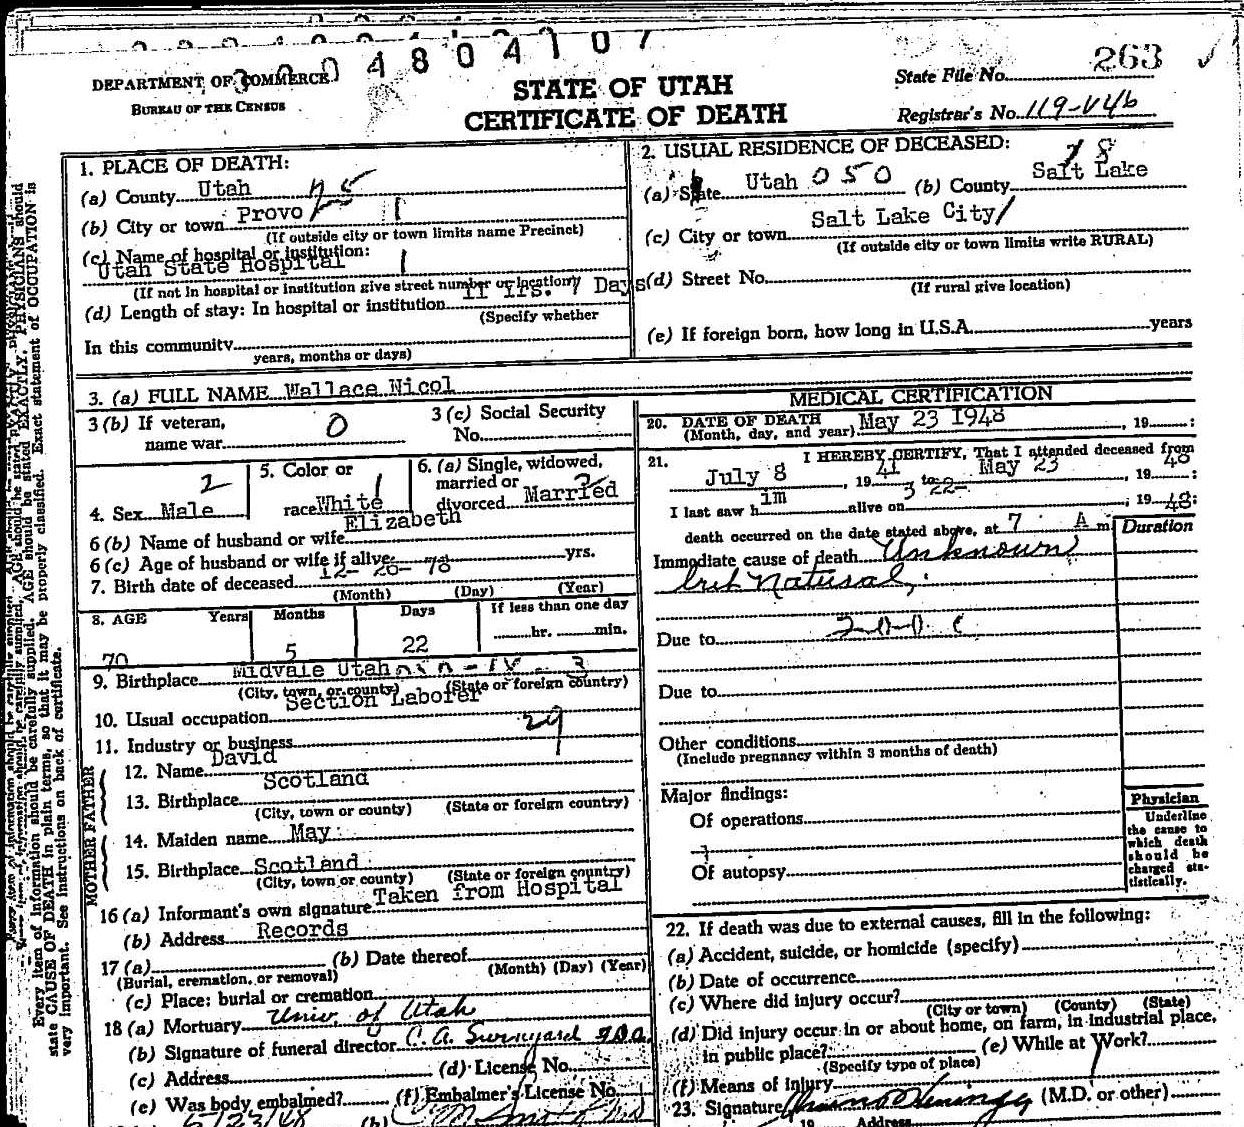 3 0 0 4 8 0 4 1 0 7
DEPARTMENT OF COMMERCE
BUREAU OF THE CENSUS
STATE OF UTAH
CERTIFICATE OF DEATH
State File No. 263
Registrar's No. 119-V46
1. PLACE OF DEATH:
(a) County Utah 25
(b) City or town Provo
(If outside city or town limits name Precinct)
(c) Name of hospital or institution:
Utah State Hospital
(If not in hospital or institution give street number or location)
(d) Length of stay: In hospital or institution 11 Yrs. 7 Days
(Specify whether
In this community
years, months or days)
2. USUAL RESIDENCE OF DECEASED:
(a) State Utah 050 (b) County Salt Lake 18
(c) City or town Salt Lake City
(If outside city or town limits write RURAL)
(d) Street No.
(If rural give location)
(e) If foreign born, how long in U.S.A. years
3. (a) FULL NAME Wallace Nicol
3 (b) If veteran,
name war 0
3 (c) Social Security
No.
4. Sex Male 2
5. Color or
race White 1
6. (a) Single, widowed,
married or
divorced Married 2
6 (b) Name of husband or wife Elizabeth
6 (c) Age of husband or wife if alive yrs.
7. Birth date of deceased 12- 26- 78
(Month) (Day) (Year)
8. AGE Years Months Days If less than one day
70 5 22 hr. min.
9. Birthplace Midvale Utah
(City, town, or county) (State or foreign country)
10. Usual occupation Section Laborer
11. Industry or business 29
FATHER
12. Name David
13. Birthplace Scotland
(City, town or county) (State or foreign country)
MOTHER
14. Maiden name May
15. Birthplace Scotland
(City, town or county) (State or foreign country)
16 (a) Informant's own signature Taken from Hospital
(b) Address Records
17 (a) (b) Date thereof
(Burial, cremation, or removal) (Month) (Day) (Year)
(c) Place: burial or cremation
18 (a) Mortuary Univ. of Utah
(b) Signature of funeral director C. A.
(c) Address (d) License No.
(e) Was body embalmed? (f) Embalmer's License No.
5/23/48 (b)
MEDICAL CERTIFICATION
20. DATE OF DEATH
(Month, day, and year) May 23 1948, 19 :
21. I HEREBY CERTIFY, That I attended deceased from
July 8, 19 41 to May 23, 19 48 :
I last saw him alive on 3 22-; 19 48:
death occurred on the date stated above, at 7 A m
Duration
Immediate cause of death Unknown
but Natural.
Due to
Due to
Other conditions
(Include pregnancy within 3 months of death)
Major findings:
Of operations
Of autopsy
Physician
Underline
the cause to
which death
should be
charged sta-
tistically.
22. If death was due to external causes, fill in the following:
(a) Accident, suicide, or homicide (specify)
(b) Date of occurrence
(c) Where did injury occur?
(City or town) (County) (State)
(d) Did injury occur in or about home, on farm, in industrial place,
in public place? (e) While at Work?
(Specify type of place)
(f) Means of Injury
23. Signature (M.D. or other)
19 Address
Every item of information should be carefully supplied. AGE should be stated EXACTLY. PHYSICIANS should
state CAUSE OF DEATH in plain terms, so that it may be properly classified. Exact statement of OCCUPATION is
very important. See instructions on back of certificate.